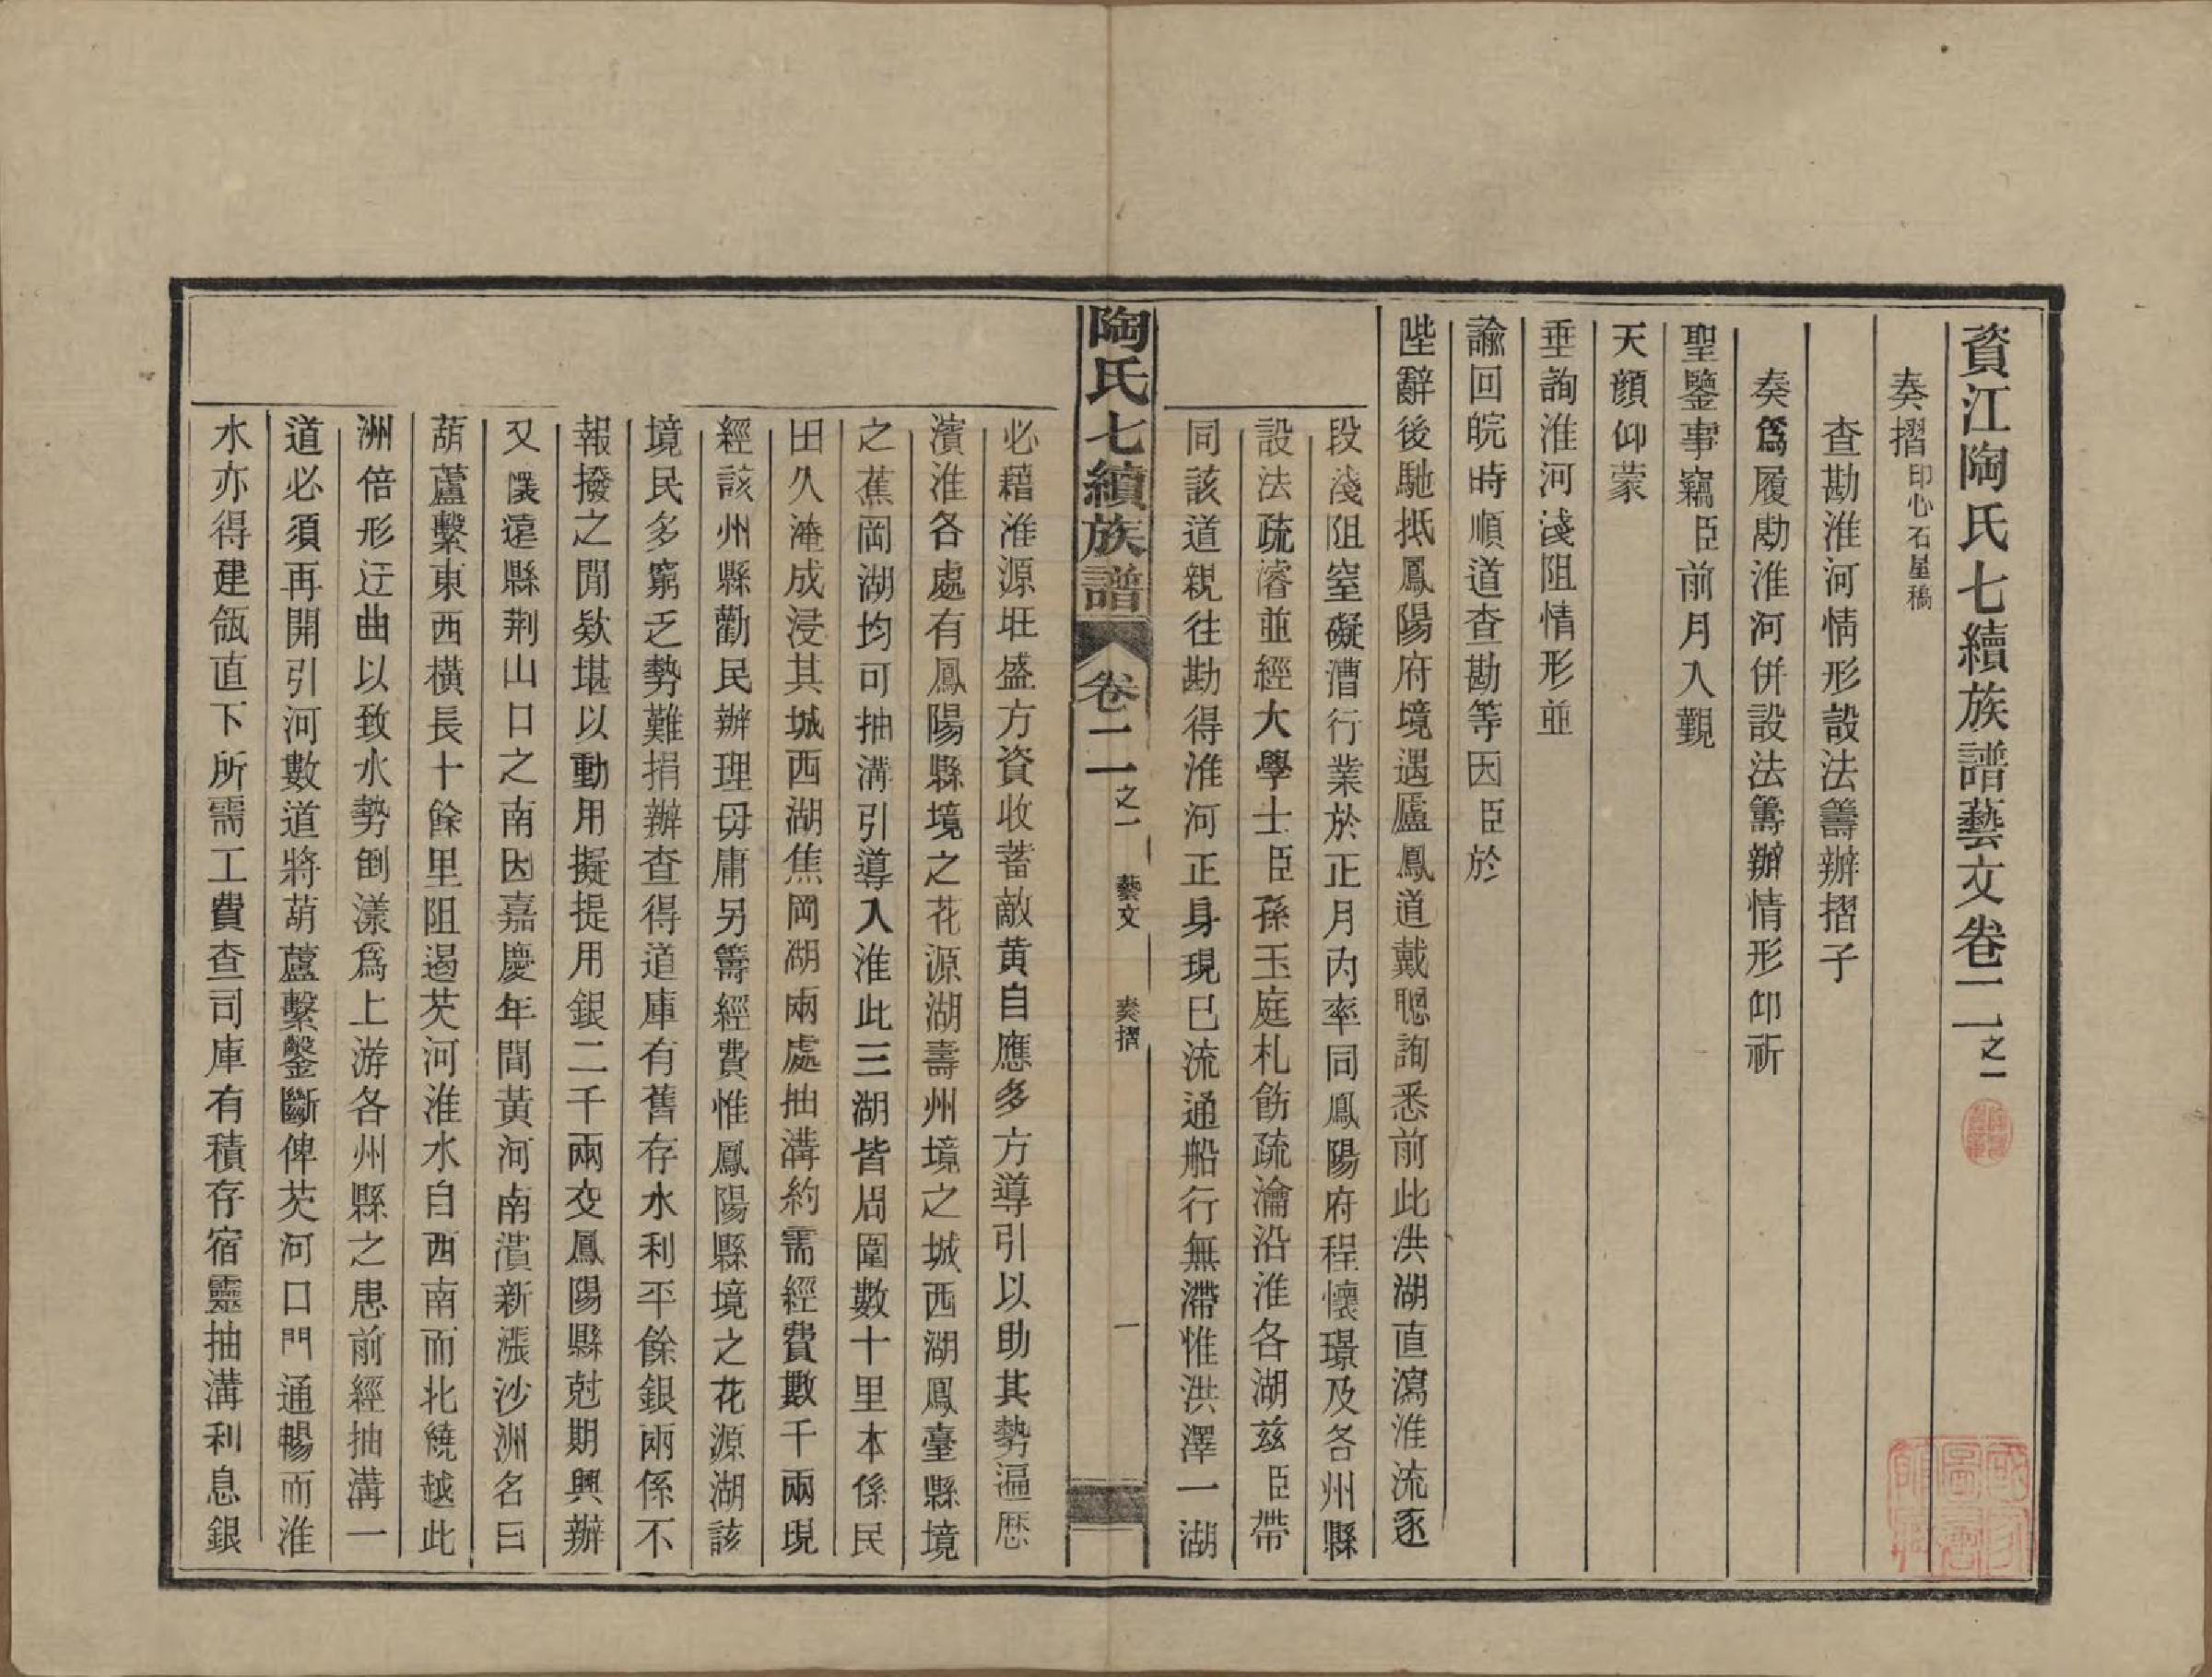 資江陶氏七續族譜藝文卷二之一
奏摺印心石屋稿
查勘淮河情形設法籌辦摺子
奏爲履勘淮河併設法籌辦情形仰祈
聖鑒事竊臣前月入覲
天顔仰蒙
垂詢淮河淺阻情形並
諭回皖時順道查勘等因臣於
陛辭後馳抵鳳陽府境遇廬鳳道戴聰詢悉前此洪湖直瀉淮流逐
段淺阻窒礙漕行業於正月內率同鳳陽府程懷璟及各州縣
設法疏濬並經大學士臣孫玉庭札飭疏瀹沿淮各湖兹臣帶
同該道親往勘得淮河正身現已流通船行無滯惟洪澤一湖
陶氏七續族譜
卷二之一 藝文 奏摺 一
必藉淮源旺盛方資收蓄敵黃自應多方導引以助其勢遍歷
濱淮各處有鳳陽縣境之花源湖壽州境之城西西湖鳳臺縣境
之蕉岡湖均可抽溝引導入淮此三湖皆周圍數十里本係民
田久淹成浸其城西湖焦岡湖兩處抽溝約需經費數千兩現
經該州縣勸民辦理毋庸另籌經費惟鳳陽縣境之花源湖該
境民多窮乏勢難捐辦查得道庫有舊存水利平餘銀兩係不
報撥之閒欵堪以動用擬提用銀二千兩交鳳陽縣尅期興辦
又懷遠縣荆山口之南因嘉慶年間黃河南潰新漲沙洲名曰
葫蘆繫東西橫長十餘里阻遏芡河淮水自西南而北繞越此
洲倍形迂曲以致水勢倒漾爲上游各州縣之患前經抽溝一
道必須再開引河數道將葫蘆繫鑿斷俾芡河口門通暢而淮
水亦得建瓴直下所需工費查司庫有積存宿靈抽溝利息銀